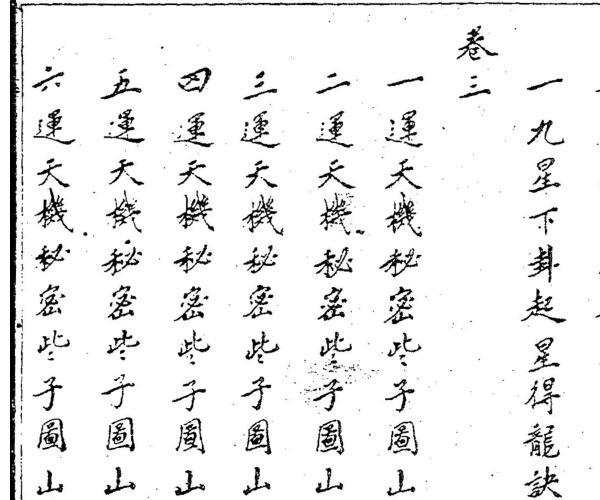 一九星下卦起星得龍訣
卷三
一運天機秘密些子圖山
二運天機秘密些子圖山
三運天機秘密些子圖山
四運天機秘密些子圖山
五運天機秘密些子圖山
六運天機秘密些子圖山